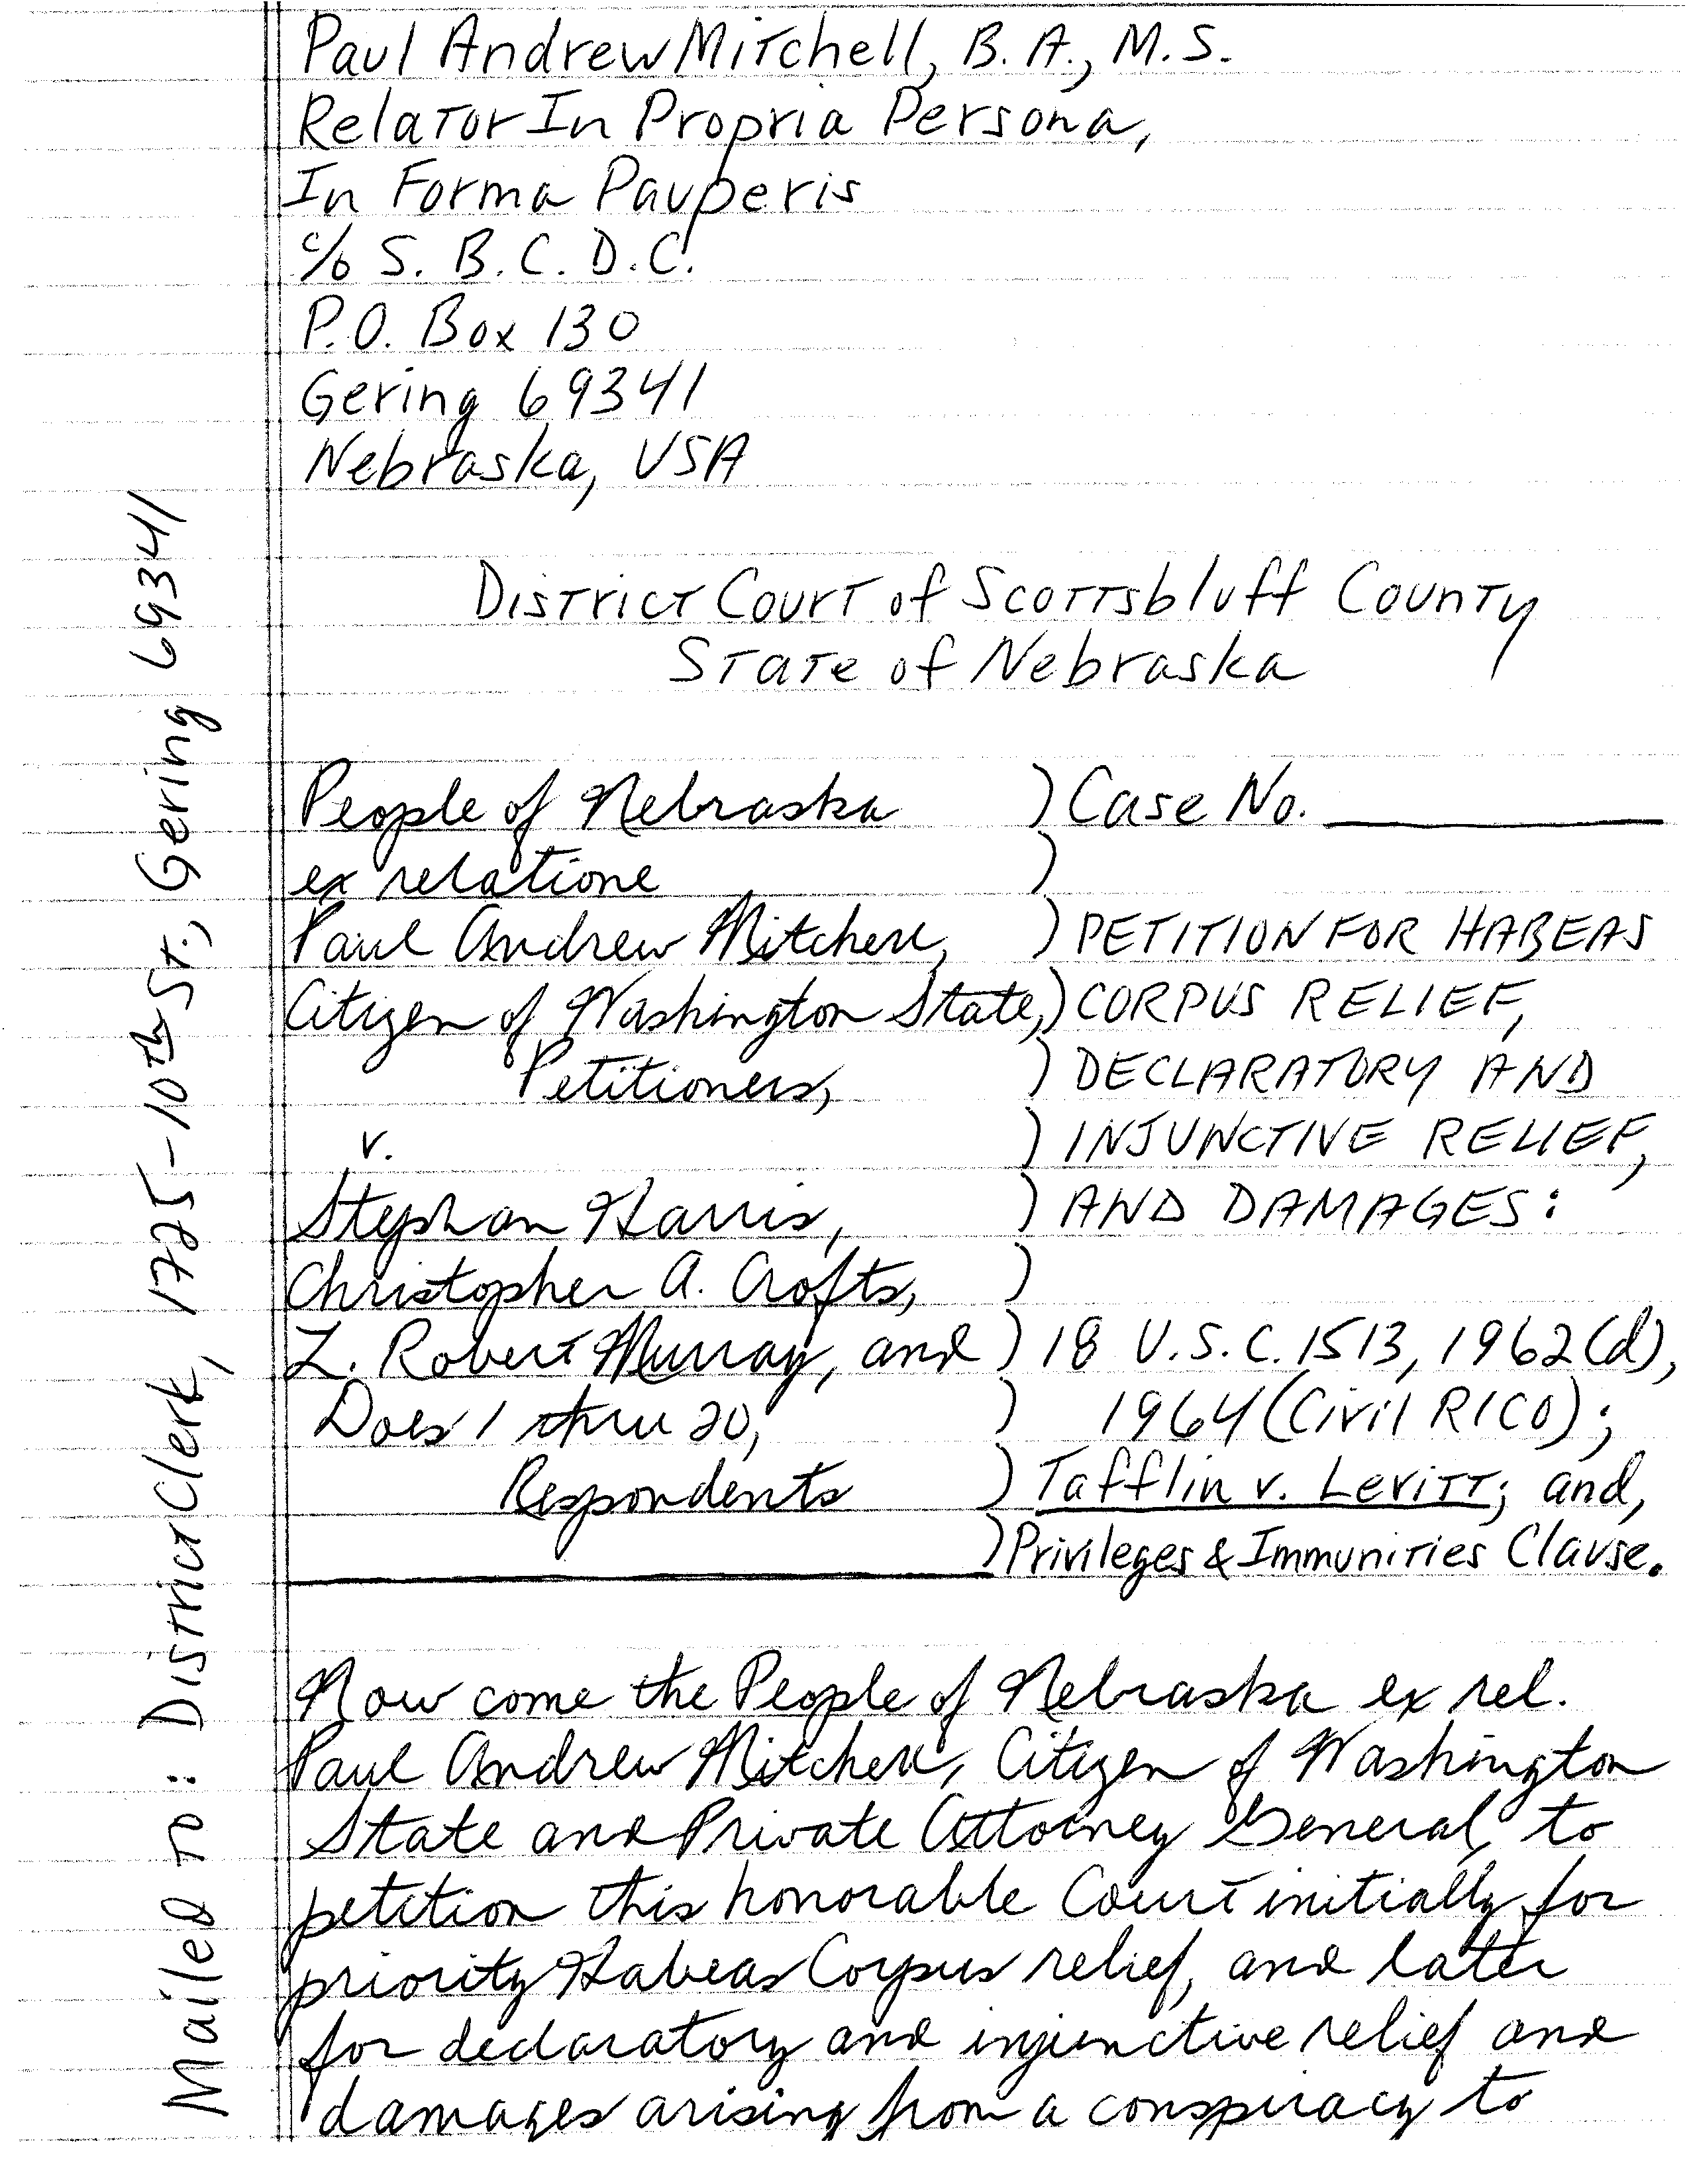 Paul Andrew Mitchell, B.A., M.S.
Relator In Propria Persona,
In Forma Pauperis
c/o S.B.C.D.C.
P.O. Box 130
Gering 69341
Nebraska, USA
District Court of Scottsbluff County
State of Nebraska
People of Nebraska ) Case No. ________
ex relatione )
Paul Andrew Mitchell, ) PETITION FOR HABEAS
Citizen of Washington State, ) CORPUS RELIEF,
Petitioners, ) DECLARATORY AND
v. ) INJUNCTIVE RELIEF,
Stephan Harris, ) AND DAMAGES:
Christopher A. Crofts, )
L. Robert Murray, and ) 18 U.S.C. 1513, 1962(d),
Does 1 thru 20, ) 1964 (Civil RICO);
Respondents ) Tafflin v. Levitt; and,
) Privileges & Immunities Clause.
Now come the People of Nebraska ex rel.
Paul Andrew Mitchell, Citizen of Washington
State and Private Attorney General, to
petition this honorable Court initially for
priority Habeas Corpus relief, and later
for declaratory and injunctive relief and
damages arising from a conspiracy to
Mailed to: District Clerk, 1725-10th St., Gering 69341